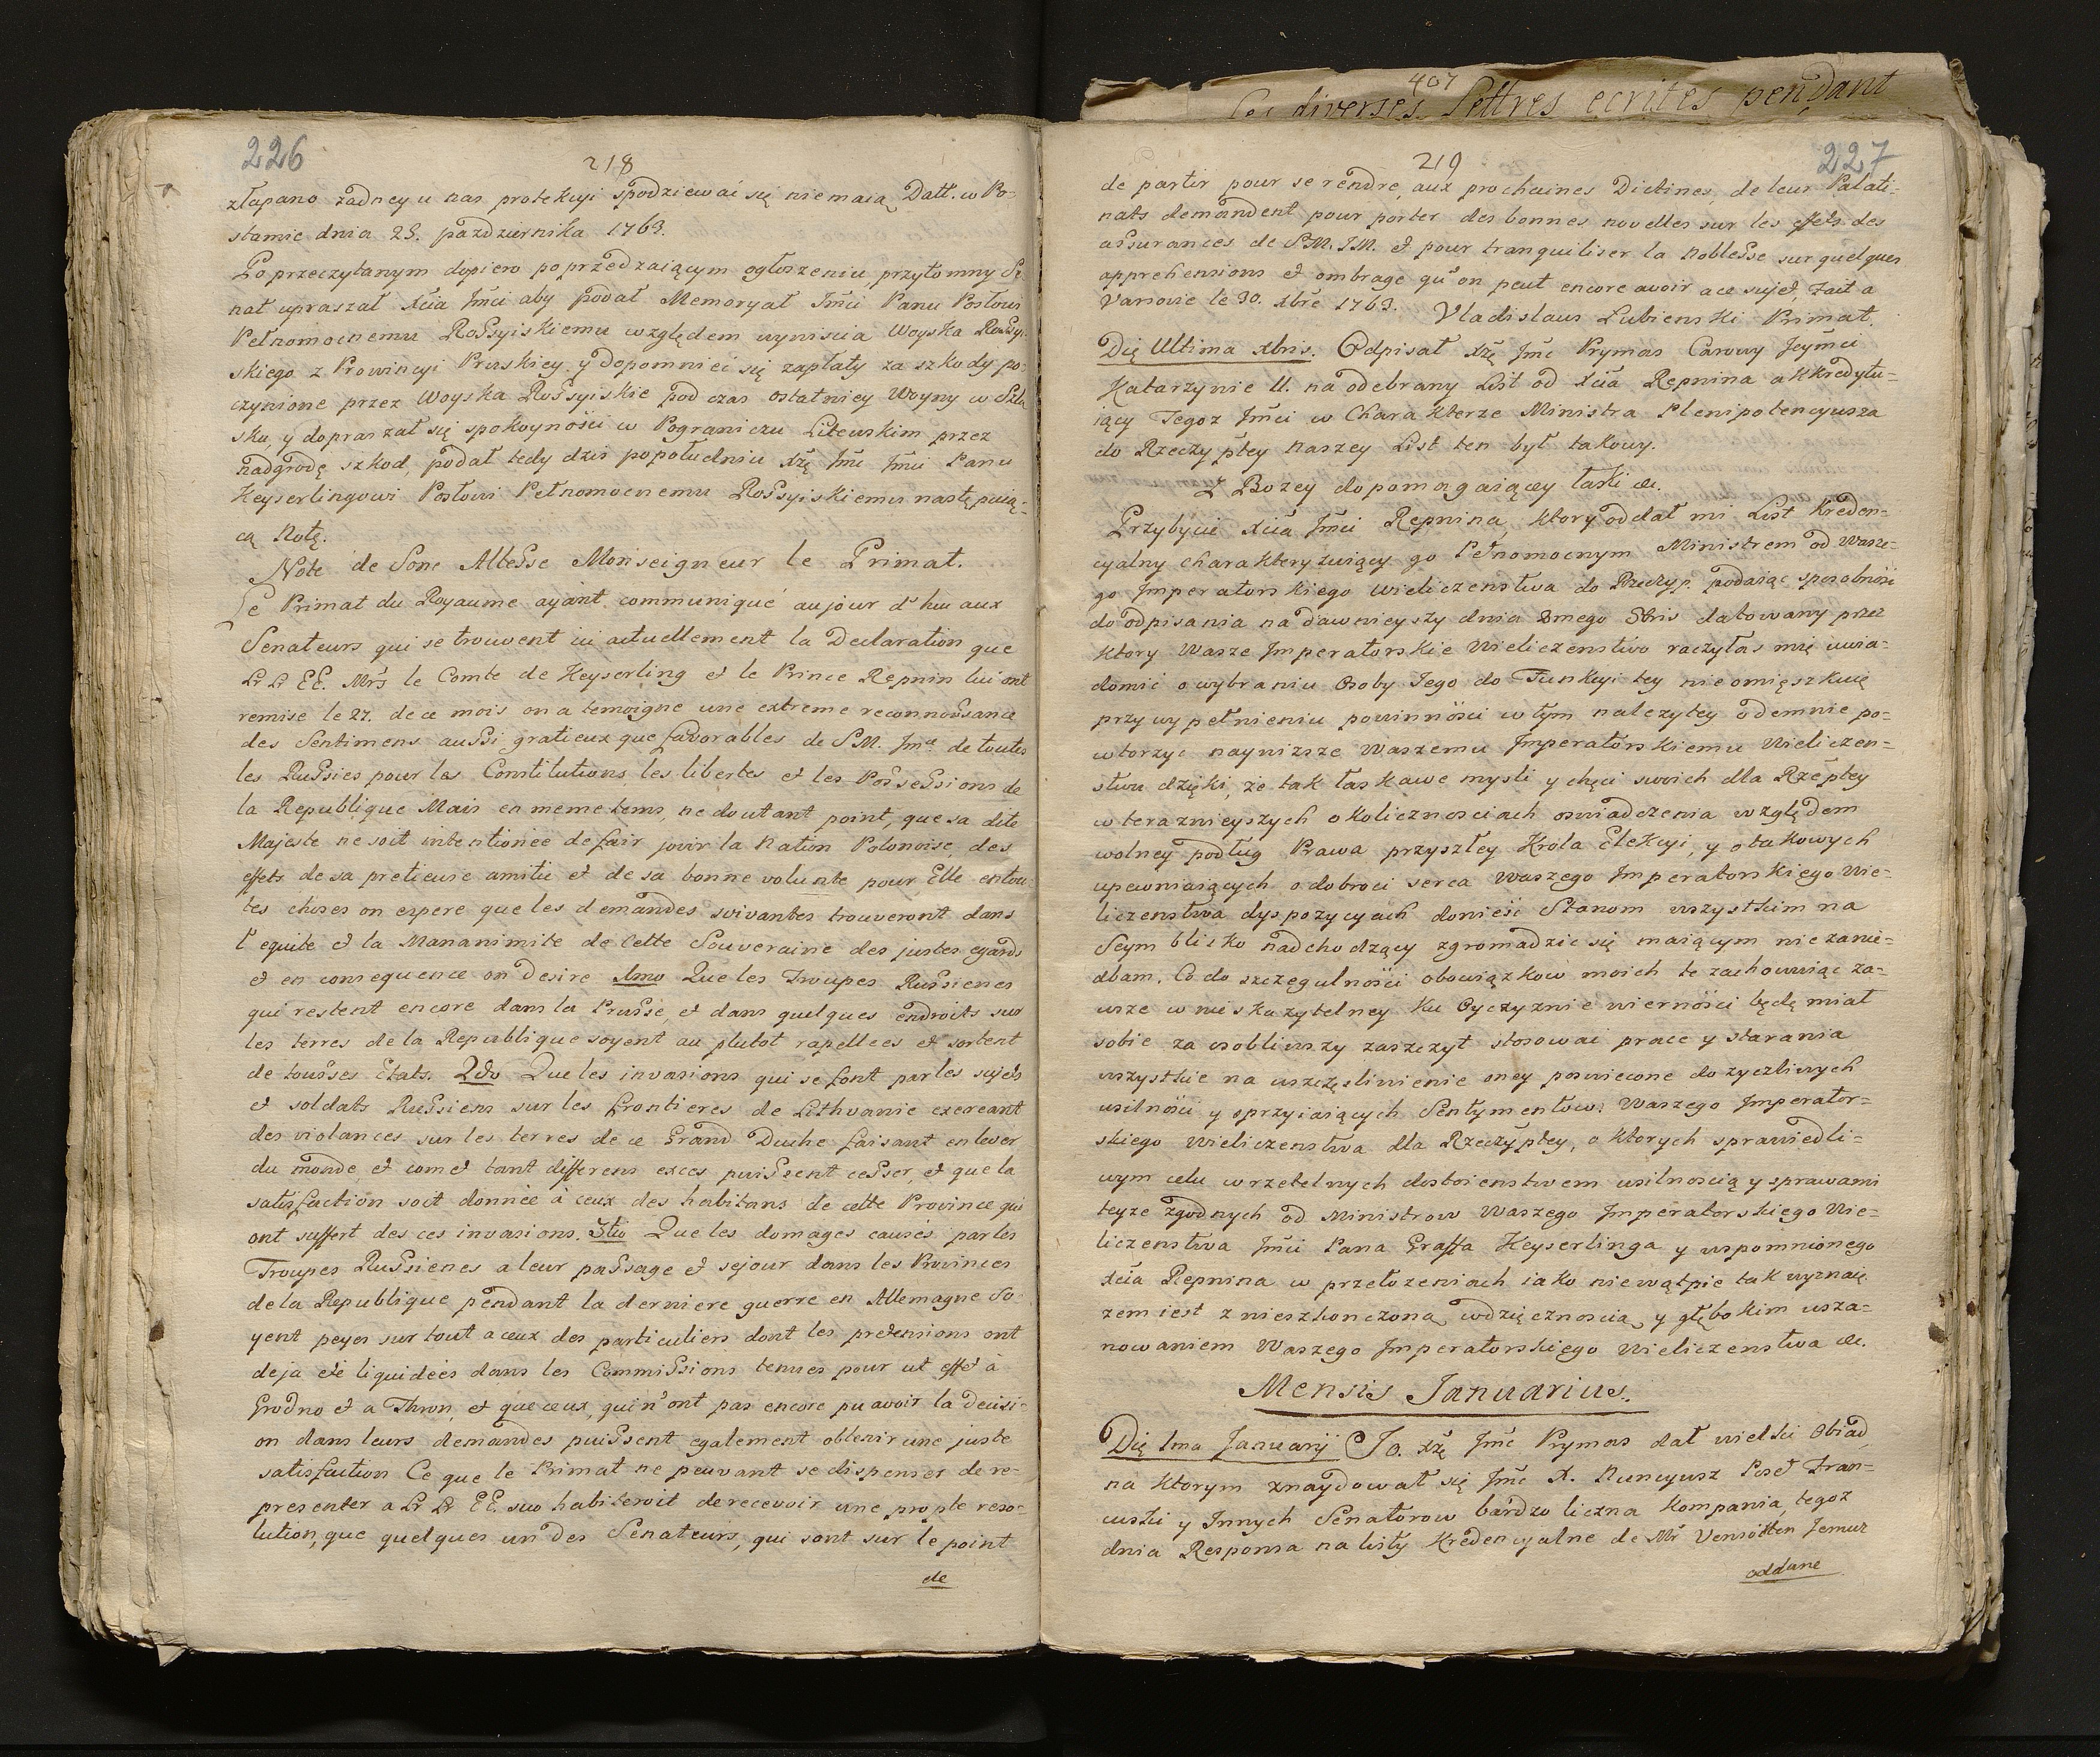 226
218
złapano żadney u nas protekcyi spodziewać się nie maią Datt. w Po-
stamie dnia 23. pazdziernika 1763.
Po przeczytanym dopiero poprzedzaiącym ogłoszeniu, przytomny Se-
nat upraszał Xcia Jmci aby podał Memoryał Jmci Panu Posłowi
Pełnomocnemu Rossyiskiemu względem wyniscia Woyska Rossyi-
skiego z Prowincyi Pruskiey y dopomnieć się zapłaty za szkody po-
czynione przez Woyska Rossyiskie pod czas ostatniey Woyny w Szlą
sku, y dopraszał się spokoyności w Pograniczu Litewskim przez
nadgrodę szkod, podał tedy dziś popołudniu Xżę Jmć Jmci Panu
Keyserlingowi Posłowi Pełnomocnemu Rossyiskiemu następuią-
cą Notę.
Note de Sone Altesse Monseigneur le Primat.
Le Primat du Royaume ayant communiqué aujour d'hui aux
Senateurs qui se trouvent ici actuellement la Declaration que
Lr Lr EE. Mrs le Comte de Keyserling et le Prince Repnin lui ont
remise le 27. de ce mois on a temoigne une extreme reconnoissance
des Sentimens aussi gratieux que favorables de S.M. Jmle de toutes
les Russies pour les Constitutions les libertes et les Possessions de
la Republique Mais en meme tems, ne doutant point, que sa dite
Majeste ne soit intentionée de fair jouir la Nation Polonoise, des
effets de sa pretieuse amitie et de sa bonne volunte pour Elle en tou-
tes choses on espere que les demandes suivantes trouveront dans
l'equite et la Mananimite de cette Souveraine des justes egards
et en consequence on desire 1mo Que les Troupes Russienes
qui restent encore dans la Prusse, et dans quelques endroits sur
les terres de la Republique soyent au plutot rapellees et sortent
de tous ses Etats. 2do Que les invasions qui se font par les sujets
et soldats Russiens sur les frontieres de Lithvanie exerceant
des violances sur les terres de ce Grand Duche faisant enlever
du monde, et comet tant differens exces puissent cesser, et que la
satisfaction soit donnée à ceux des habitans de cette Province qui
ont suffert des ces invasions. 3tio Que les domages causés par les
Troupes Russienes a leur passage et sejour dans les Provinces
de la Republique pendant la derniere guerre en Allemagne So-
yent peyes sur tout a ceux des particuliers dont les pretensions ont
deja eté liquidées dans les Commissions tenues pour ut effet à
Grodno et a Thron, et que ceux, qui n'ont pas encore pu avoir la decisi-
on dans leurs demandes puissent egalement obtenir une juste
satisfaction Ce que le Primat ne peuvant se dispenser de re-
presenter a Lr Lr EE. suo habiteroit de recevoir une prople reso-
lution, que quelques un des Senateurs, qui sont sur le point
de
407
Les diverses Lettres ecrites pendant
219
227
de partir pour se rendre, aux prochaines Dietines, de leur Palati-
nats demandent pour porter des bonnes novelles sur les effets des
assurances de S.M. J.M. et pour tranquiliser la noblesse sur quelques
apprehensions et ombrage qu'on peut encore avoir a ce sujet, Fait a
Varsovie le 30. xbre 1763. Vladislaus Lubienski Primat.
Die Ultima xbris. Odpisał Xżę Jmć Prymas Carowy Jeymci
Katarzynie II. na odebrany List od Xcia Repnina akkredytu-
iący Tegoz Jmci w Charakterze Ministra Plenipotencyusza
do Rzeczyptey naszey List ten był takowy.
Z Bozey dopomagaiącey łaski &c.
Przybycie Xcia Jmci Repnina, ktory oddał mi List kreden-
cyalny charakteryzuiący go Pełnomocnym Ministrem od Wasze-
go Imperatorskiego Wieliczenstwa do Rzeczyp. podaiąc sposobność
do odpisania na dawnieyszy dnia 8mego 8bris datowany przez
ktory Wasze Imperatorskie Wieliczenstwo raczyłas mię uwia-
domić o wybraniu Osoby Jego do Funkcyi tey nieomięszkuię
przy wypełnieniu powinności w tym nalezytey odemnie po-
wtorzyć naynizsze Waszemu Imperatorskiemu Wieliczen-
stwu dzięki, że tak łaskawe mysli y chęci swoich dla Rzeptey
w teraznieyszych okolicznosciach oswiadczenia względem
wolney podług Prawa przyszłey Krola Elekcyi, y o takowych
upewniaiących o dobroci serca Waszego Imperatorskiego Wie-
liczenstwa dyspozycyach donieść Stanom wszystkim na
Seym blisko nadchodzący zgromadzic się maiącym niezanie-
dbam. Co do szczegulności obowiązkow moich te zachowuiąc za-
wsze w nieskazytelney ku Oyczyznie wierności będę miał
sobie za osobliwszy zaszczyt stosować prace y starania
wszystkie na uszczęsliwienie oney poswiecone do zyczliwych
usilności y sprzyiaiących Sentymentow: Waszego Imperator-
skiego Wieliczenstwa dla Rzeczyptey, o ktorych sprawiedli-
wym celu w rzetelnych dostoienstwem usilnoscią y sprawami
teyże zgodnych od Ministrow Waszego Imperatorskiego Wie-
liczenstwa Jmci Pana Graffa Keyserlinga y wspomnionego
Xcia Repnina w przełozeniach iako niewątpię tak wyznaię
żem iest z nieskonczoną wdzięcznoscią y głębokim usza-
nowaniem Waszego Imperatorskiego Wieliczenstwa &c.
Mensis Januarius.
Die 1ma Januarii JO. Xżę Jmć Prymas dał wielki Obiad
na ktorym znaydował się Jmć X. Nuncyusz Poseł Fran-
cuski y Innych Senatorow bardzo liczna kompania, tegoz
dnia Responsa na listy Kredencyalne de Mr Vensotten Jemuz
oddane